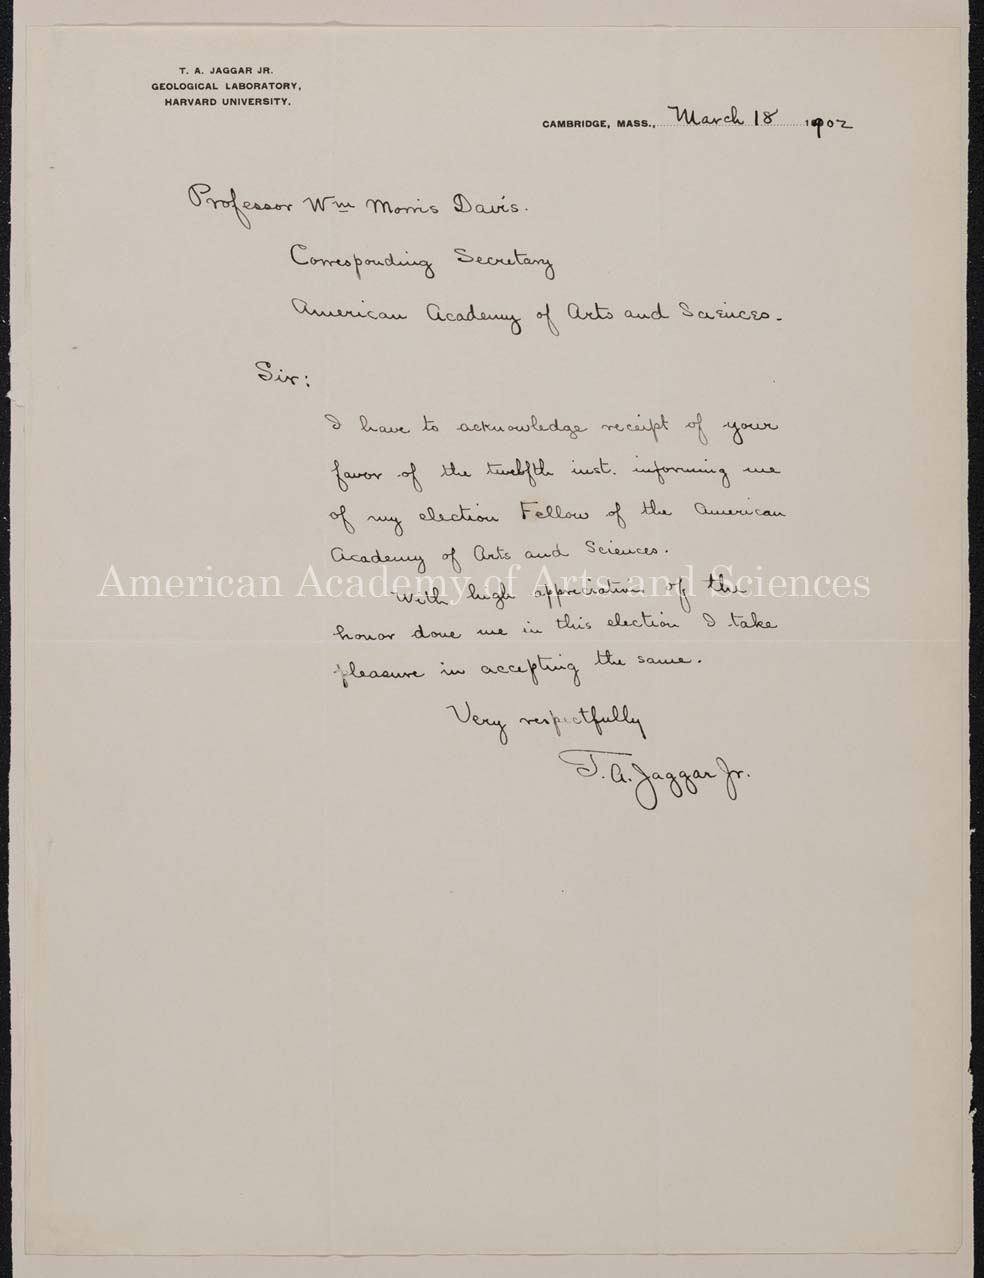 T. A. JAGGAR JR.
GEOLOGICAL LABORATORY,
HARVARD UNIVERSITY.
CAMBRIDGE, MASS., March 18 1902
Professor Wm Morris Davis.
Corresponding Secretary
American Academy of Arts and Sciences.
Sir:
I have to acknowledge receipt of your
favor of the twelfth inst. informing me
of my election Fellow of the American
Academy of Arts and Sciences.
American Academy of Arts and Sciences
With high appreciation of the
honor done me in this election I take
pleasure in accepting the same.
Very respectfully
T. A. Jaggar Jr.